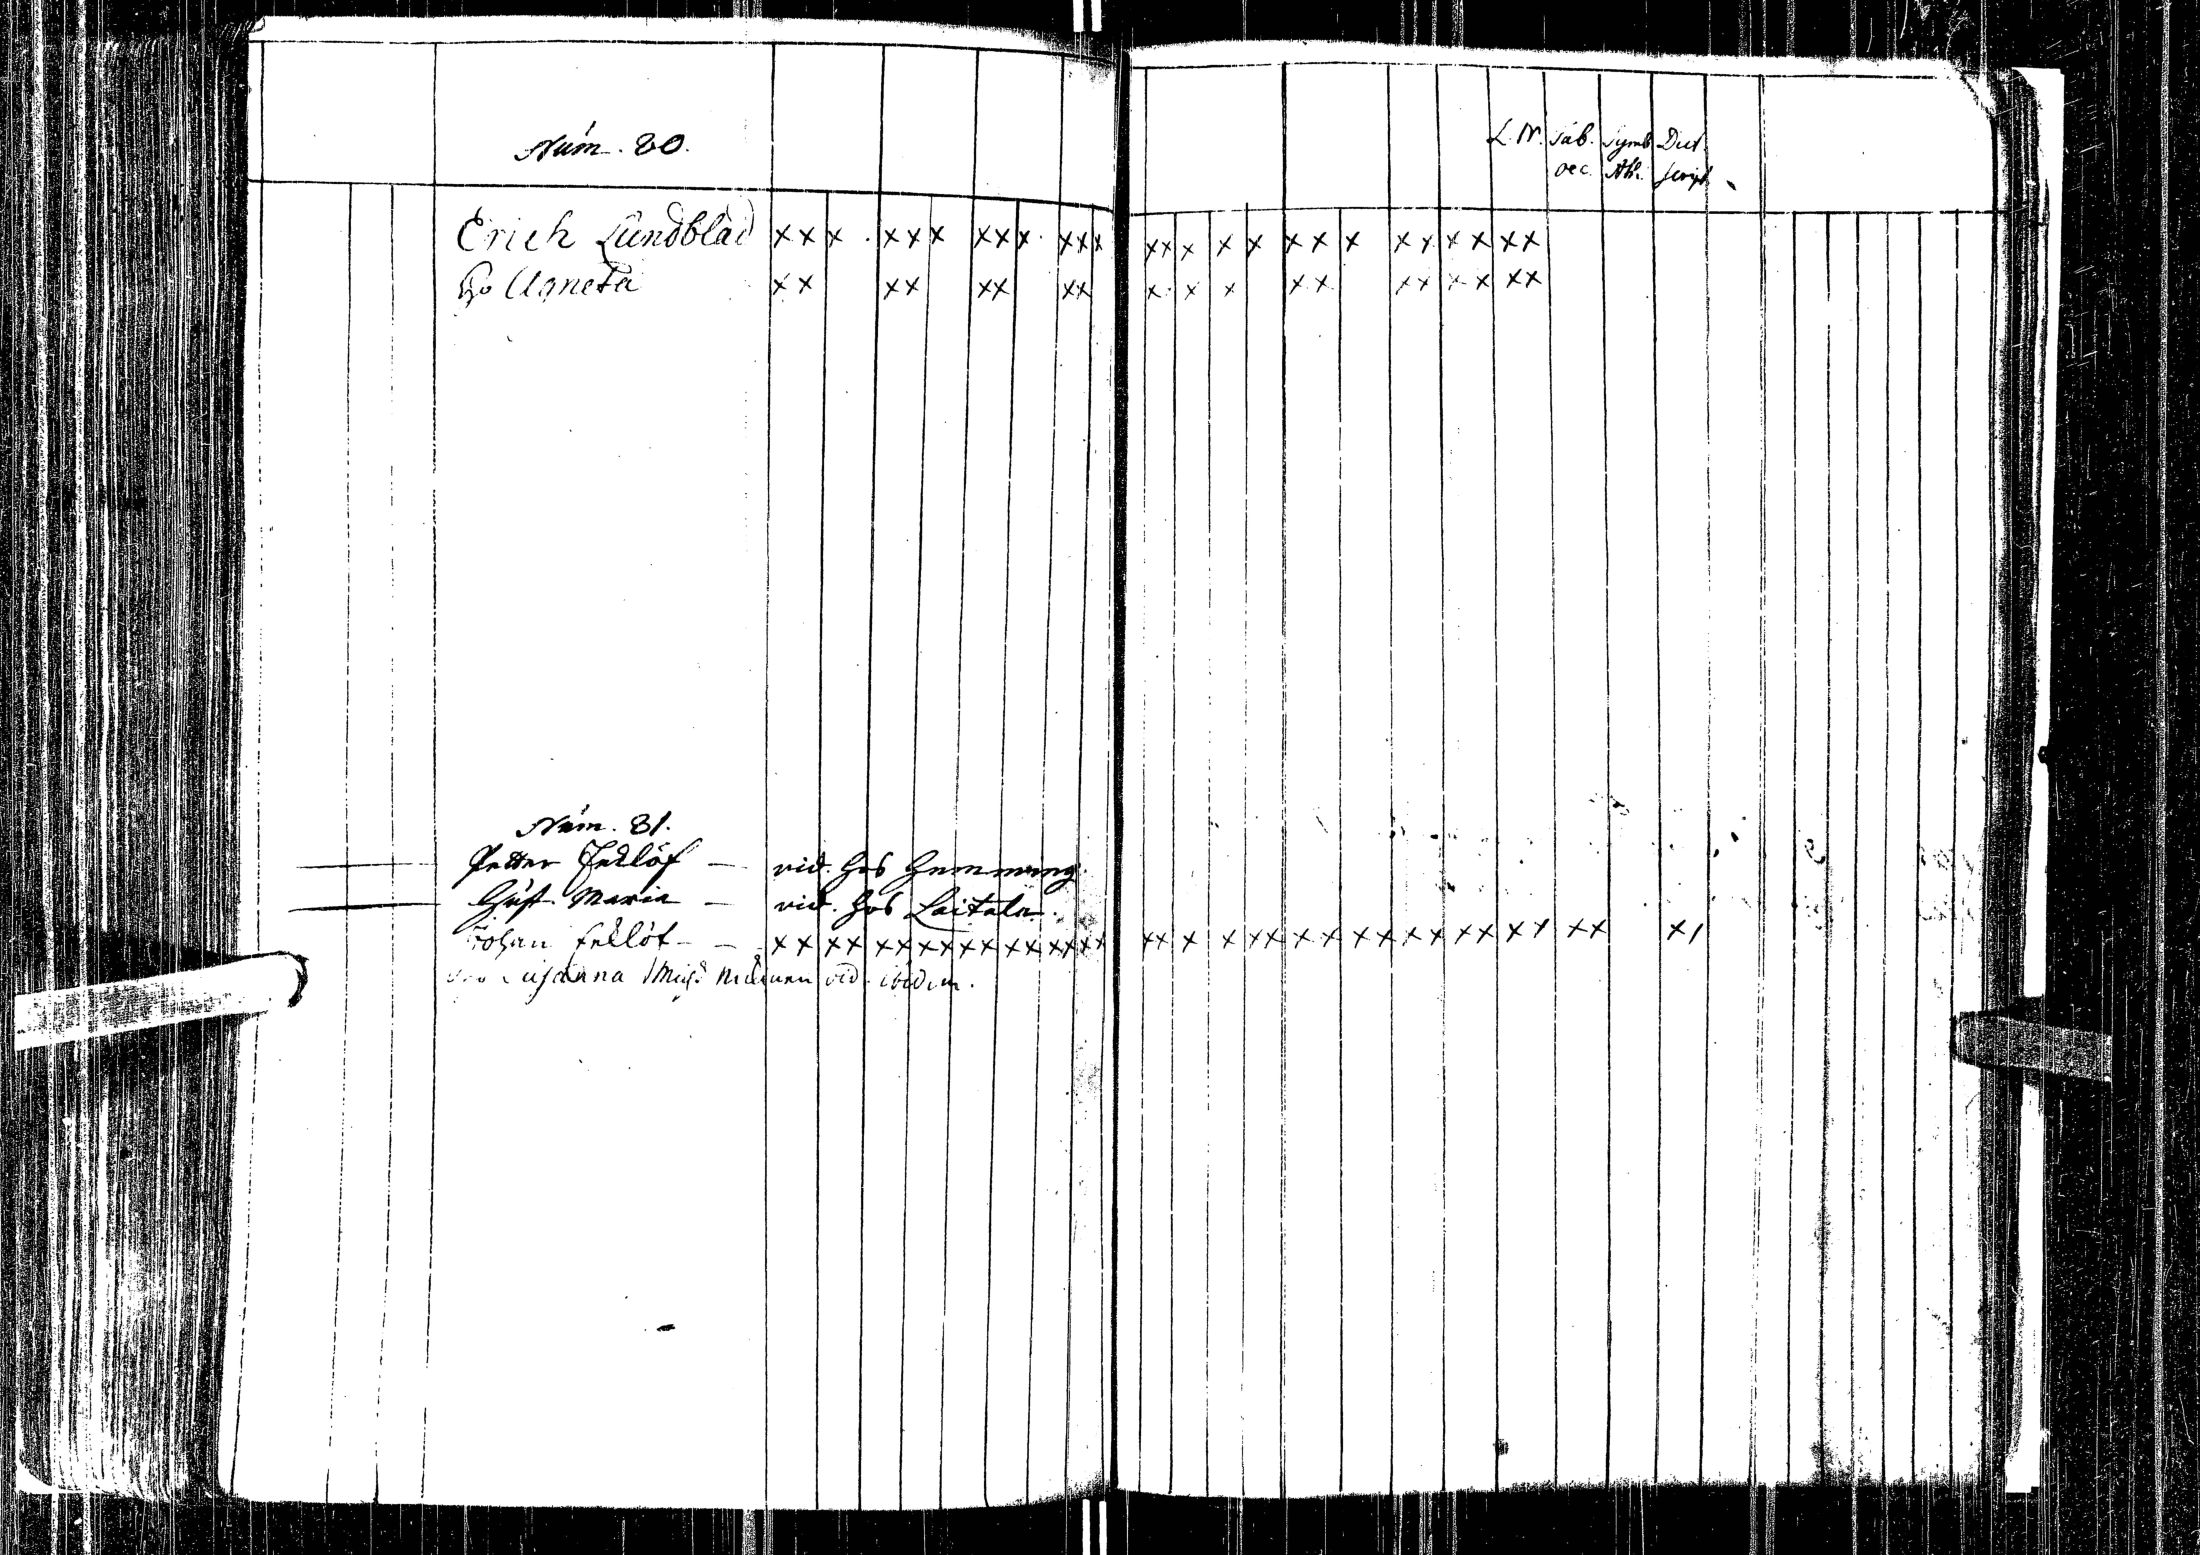 Núm. 80.
L. N. Tab. Symb. Dict.
oec. Ath. script.
Erich Lundblad xxx xxx xxx xxx xxx x x xxx xxxx xx
h:o Agneta xx xx xx xx x x x xx xx xx xx
Núm. 81.
Petter Fellöf — vid. hos Hemming.
Hust. Maria — vid. hos Laitala.
Johan Fellöf — xx xx xx xx xx xx xx xx xx x x xx xx xx xx xx xx xx x/
Susanna vid. ibidem.